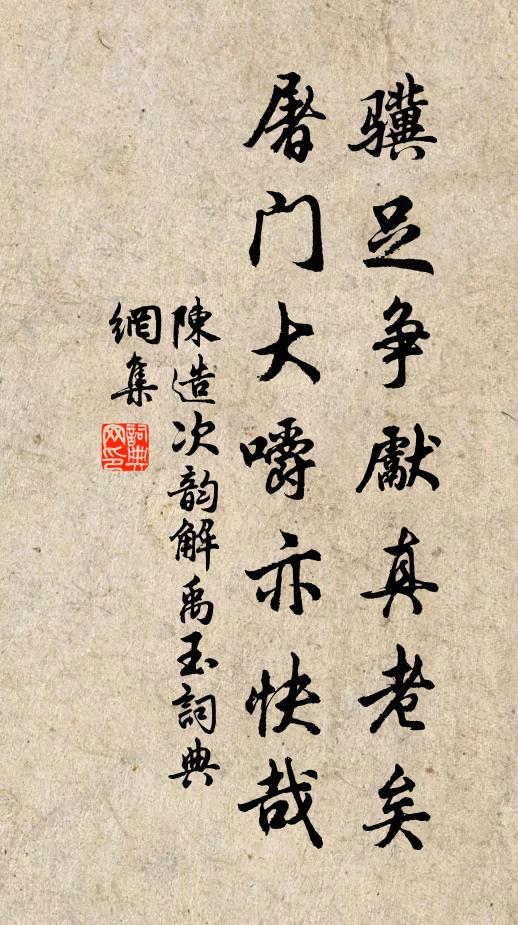 骥足争獻真老矣
屠门大嚼亦快哉
陳造次韵解禹玉詞典
網集
詞典网印